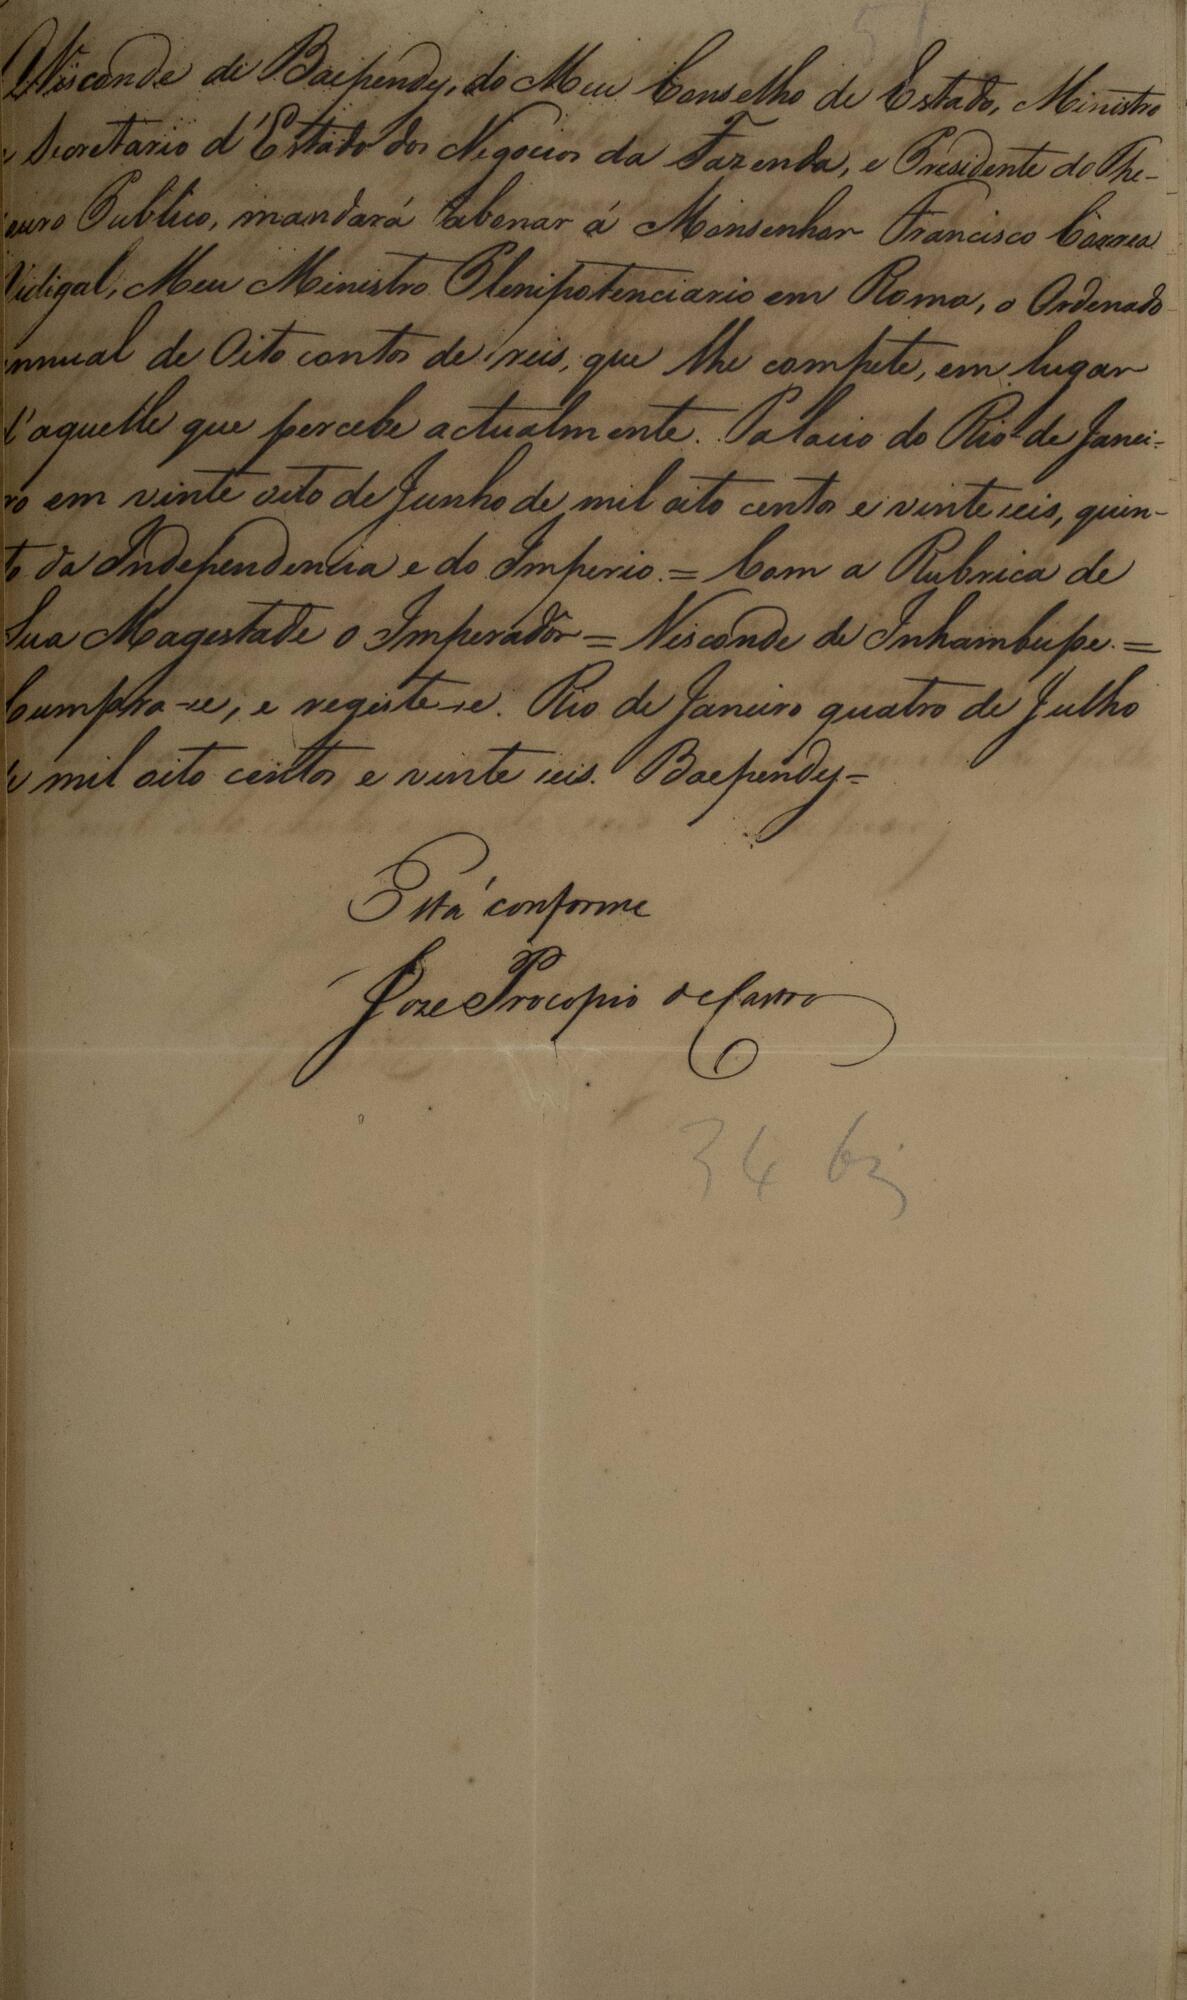 51
O Visconde de Baependy, do Meu Conselho de Estado, Ministro
e Secretario d'Estado dos Negocios da Fazenda, e Presidente do The-
souro Publico, mandará abonar á Monsenhor Francisco Correa
Vidigal, Meu Ministro Plenipotenciario em Roma, o Ordenado
annual de Oito contos de reis, que lhe compete, em lugar
d'aquelle que percebe actualmente. Palacio do Rio de Janei-
ro em vinte oito de Junho de mil oito centos e vinte seis, quin-
to da Independencia e do Imperio. = Com a Rubrica de
Sua Magestade o Imperador = Visconde de Inhambupe. =
Cumpra-se, e registe-se. Rio de Janeiro quatro de Julho
de mil oito centos e vinte seis. Baependy =
Está conforme
Joze Procopio de Castro
34 bis